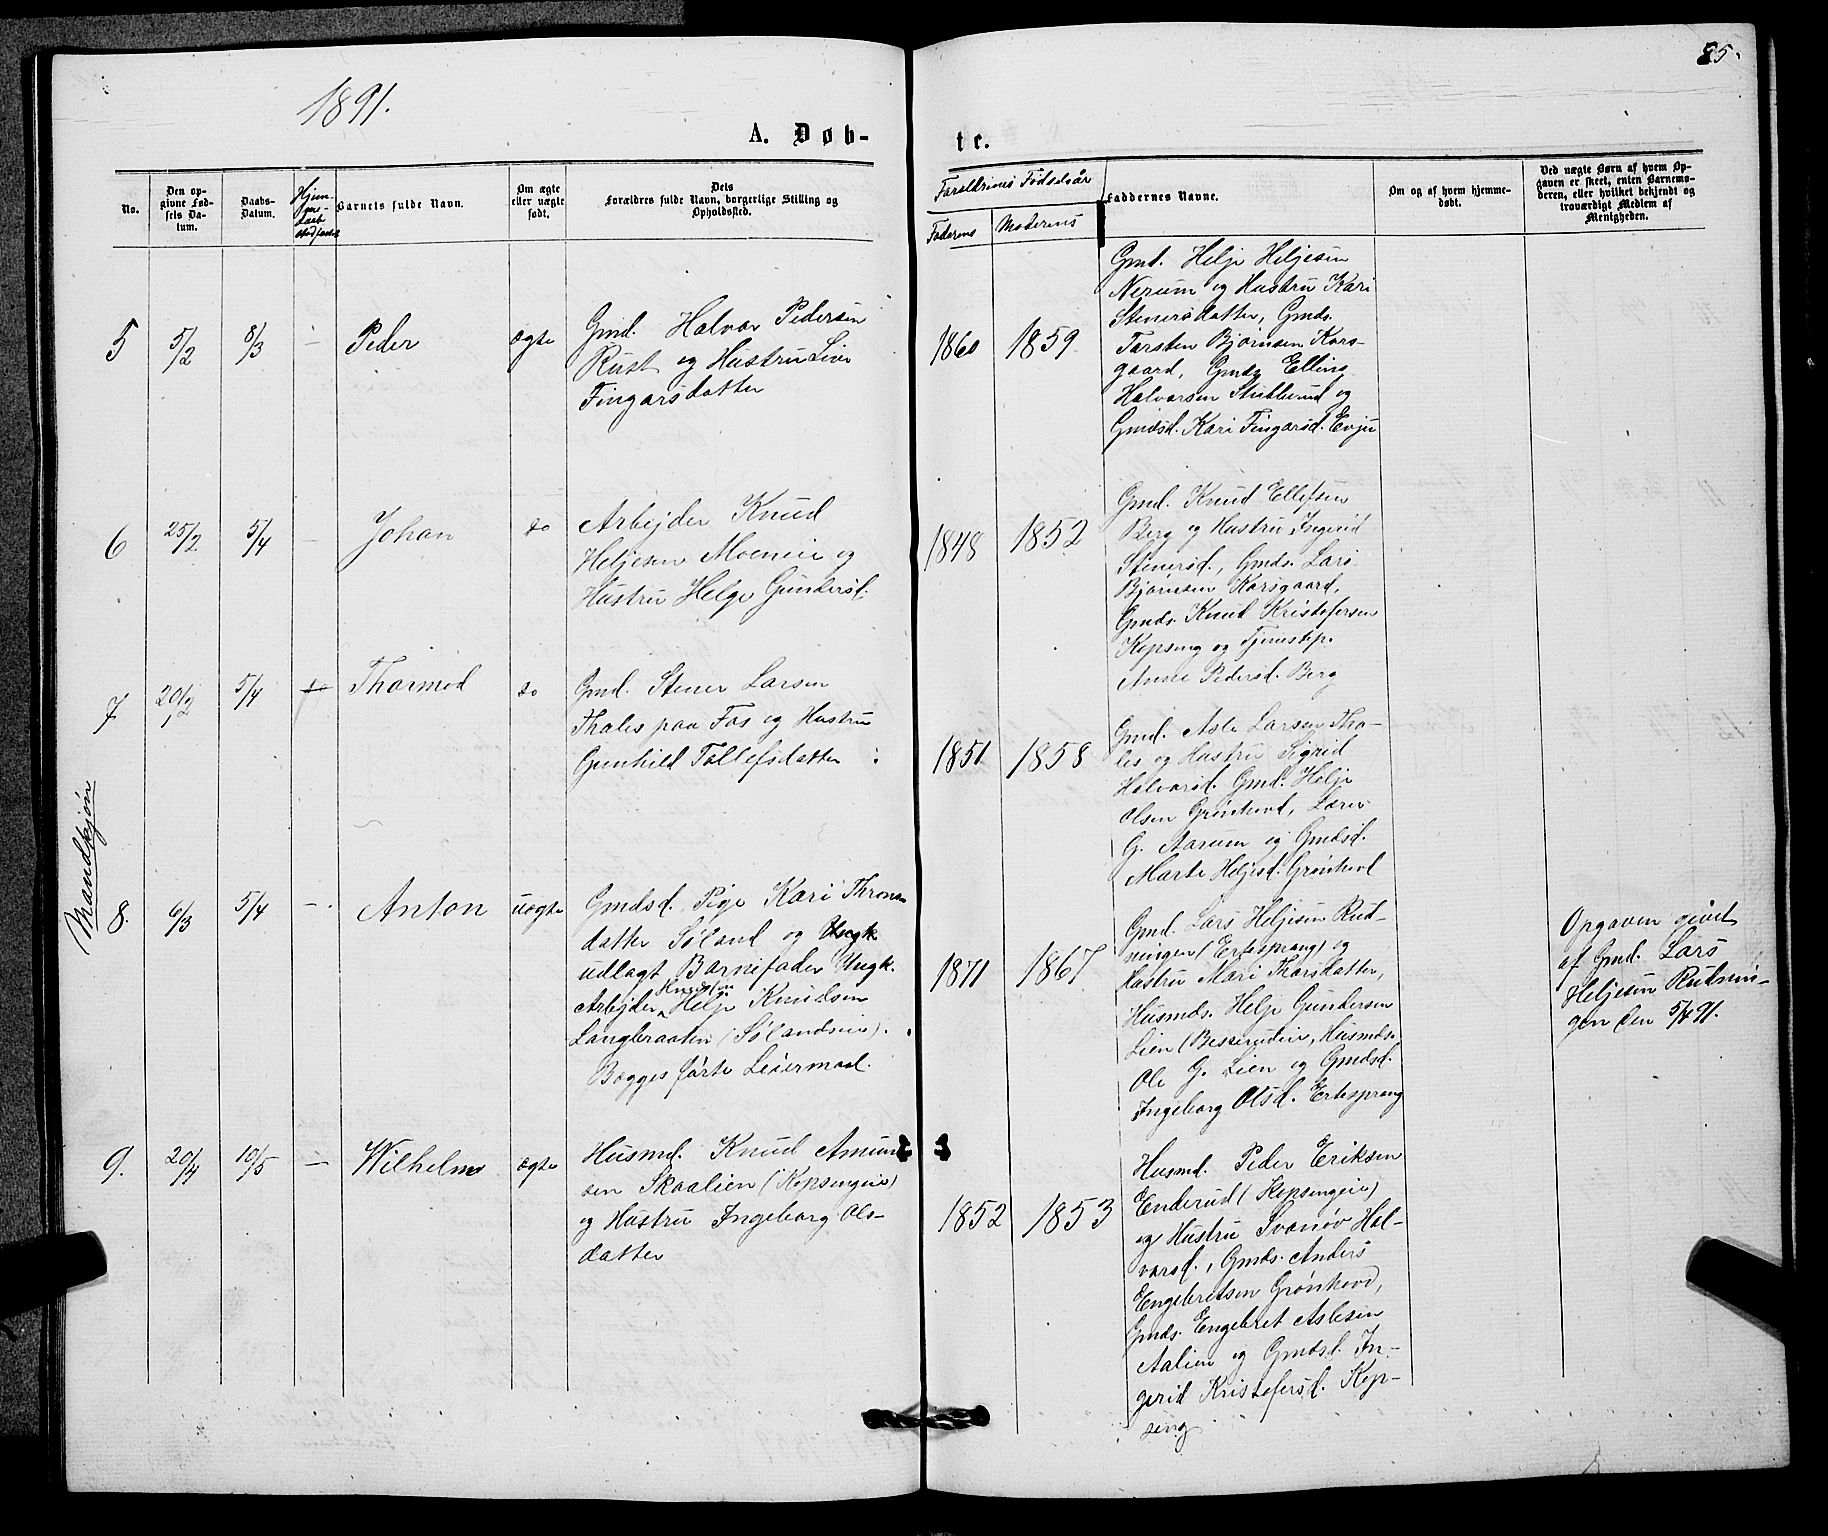 1891.
85.
A. Døb-
te.
No.
Den op-
givne Fød-
sels Da-
tum.
Daabs-
Datum.
Hjem-
me-
daab
Stadfæstet
Barnets fulde Navn.
Om ægte
eller uægte
født.
Dets
Forældres fulde Navn, borgerlige Stilling og
Opholdssted.
Forældrenes Fødselsår
Faderens
Moderens
Faddernes Navne.
Om og af hvem hjemme-
døbt.
Ved uægte Børn af hvem Op-
gaven er skeet, enten Barnemo-
deren, eller hvilket bekjendt og
troværdigt Medlem af
Menigheden.
Mandkjøn
5
5/2
8/3
-
Peder
ægte
Gmd. Halvor Pedersen
Rust og Hustru Live
Fingarsdatter
1860
1859
Gmd. Helje Heljesen
Nerum og Hustru Kari
Stenersdatter, Gmds.
Torsten Bjørnsen Kors-
gaard, Gmds Elling
Halvorsen Stublerud og
Gmdsd. Kari Fingarsd. Evju
6
25/2
5/4
-
Johan
do
Arbejder Knud
Heljesen Moeneie og
Hustru Helge Gundersd.
1848
1852
Gmd. Knud Ellefsen
Berg og Hustru Ingerid
Stenersd., Gmds. Lars
Bjørnsen Korsgaard,
Gmds. Knud Kristofersen
Kopseng og Tjenestep.
Anne Pedersd. Berg
7
20/2
5/4
do
Thormod
do
Gmd. Stener Larsen
Thales paa Fos og Hustru
Gunhild Tollefsdatter
1851
1858
Gmd. Asle Larsen Tha-
les og Hustru Sigrid
Halvorsd. Gmd. Helje
Olsen Grønhovd, Lærer
G. Aarum og Gmdsd.
Marte Heljesd. Grønhovd
8.
6/3
5/4
-
Anton
uægte
Gmdsd. Pige Kari Throns
datter Søland og Ungk
udlagt Barnefader Ungk.
Arbejder Helje Knudsen
Langbraaten (Sølandseie).
Begges første Leiermaal.
1871
1867
Gmd. Lars Heljesen Rud-
ningen (Ertesprang) og
Hustru Mari Thorsdatter,
Husmds. Helje Gundersen
Lien (Besserudeie, Husmds.
Ole G. Lien og Gmdsd.
Ingeborg Olsd. Ertesprang
Opgaven givet
af Gmd. Lars
Heljesen Rudnin-
gen den 5/4 91.
9.
20/4
10/5
-
Wilhelm
ægte
Husmd. Knud Amund
sen Skaalien (Kopsengeie)
og Hustru Ingeborg Ols-
datter
1852
1853
Husmd. Peder Eriksen
Enderud (Kopsengeie)
og Hustru Svanøv Hal-
vorsd., Gmds. Anders
Engebretsen Grønhovd,
Gmds. Engebret Aslesen
Aalien og Gmdsd. In-
gerid Kristofersd. Kop-
seng